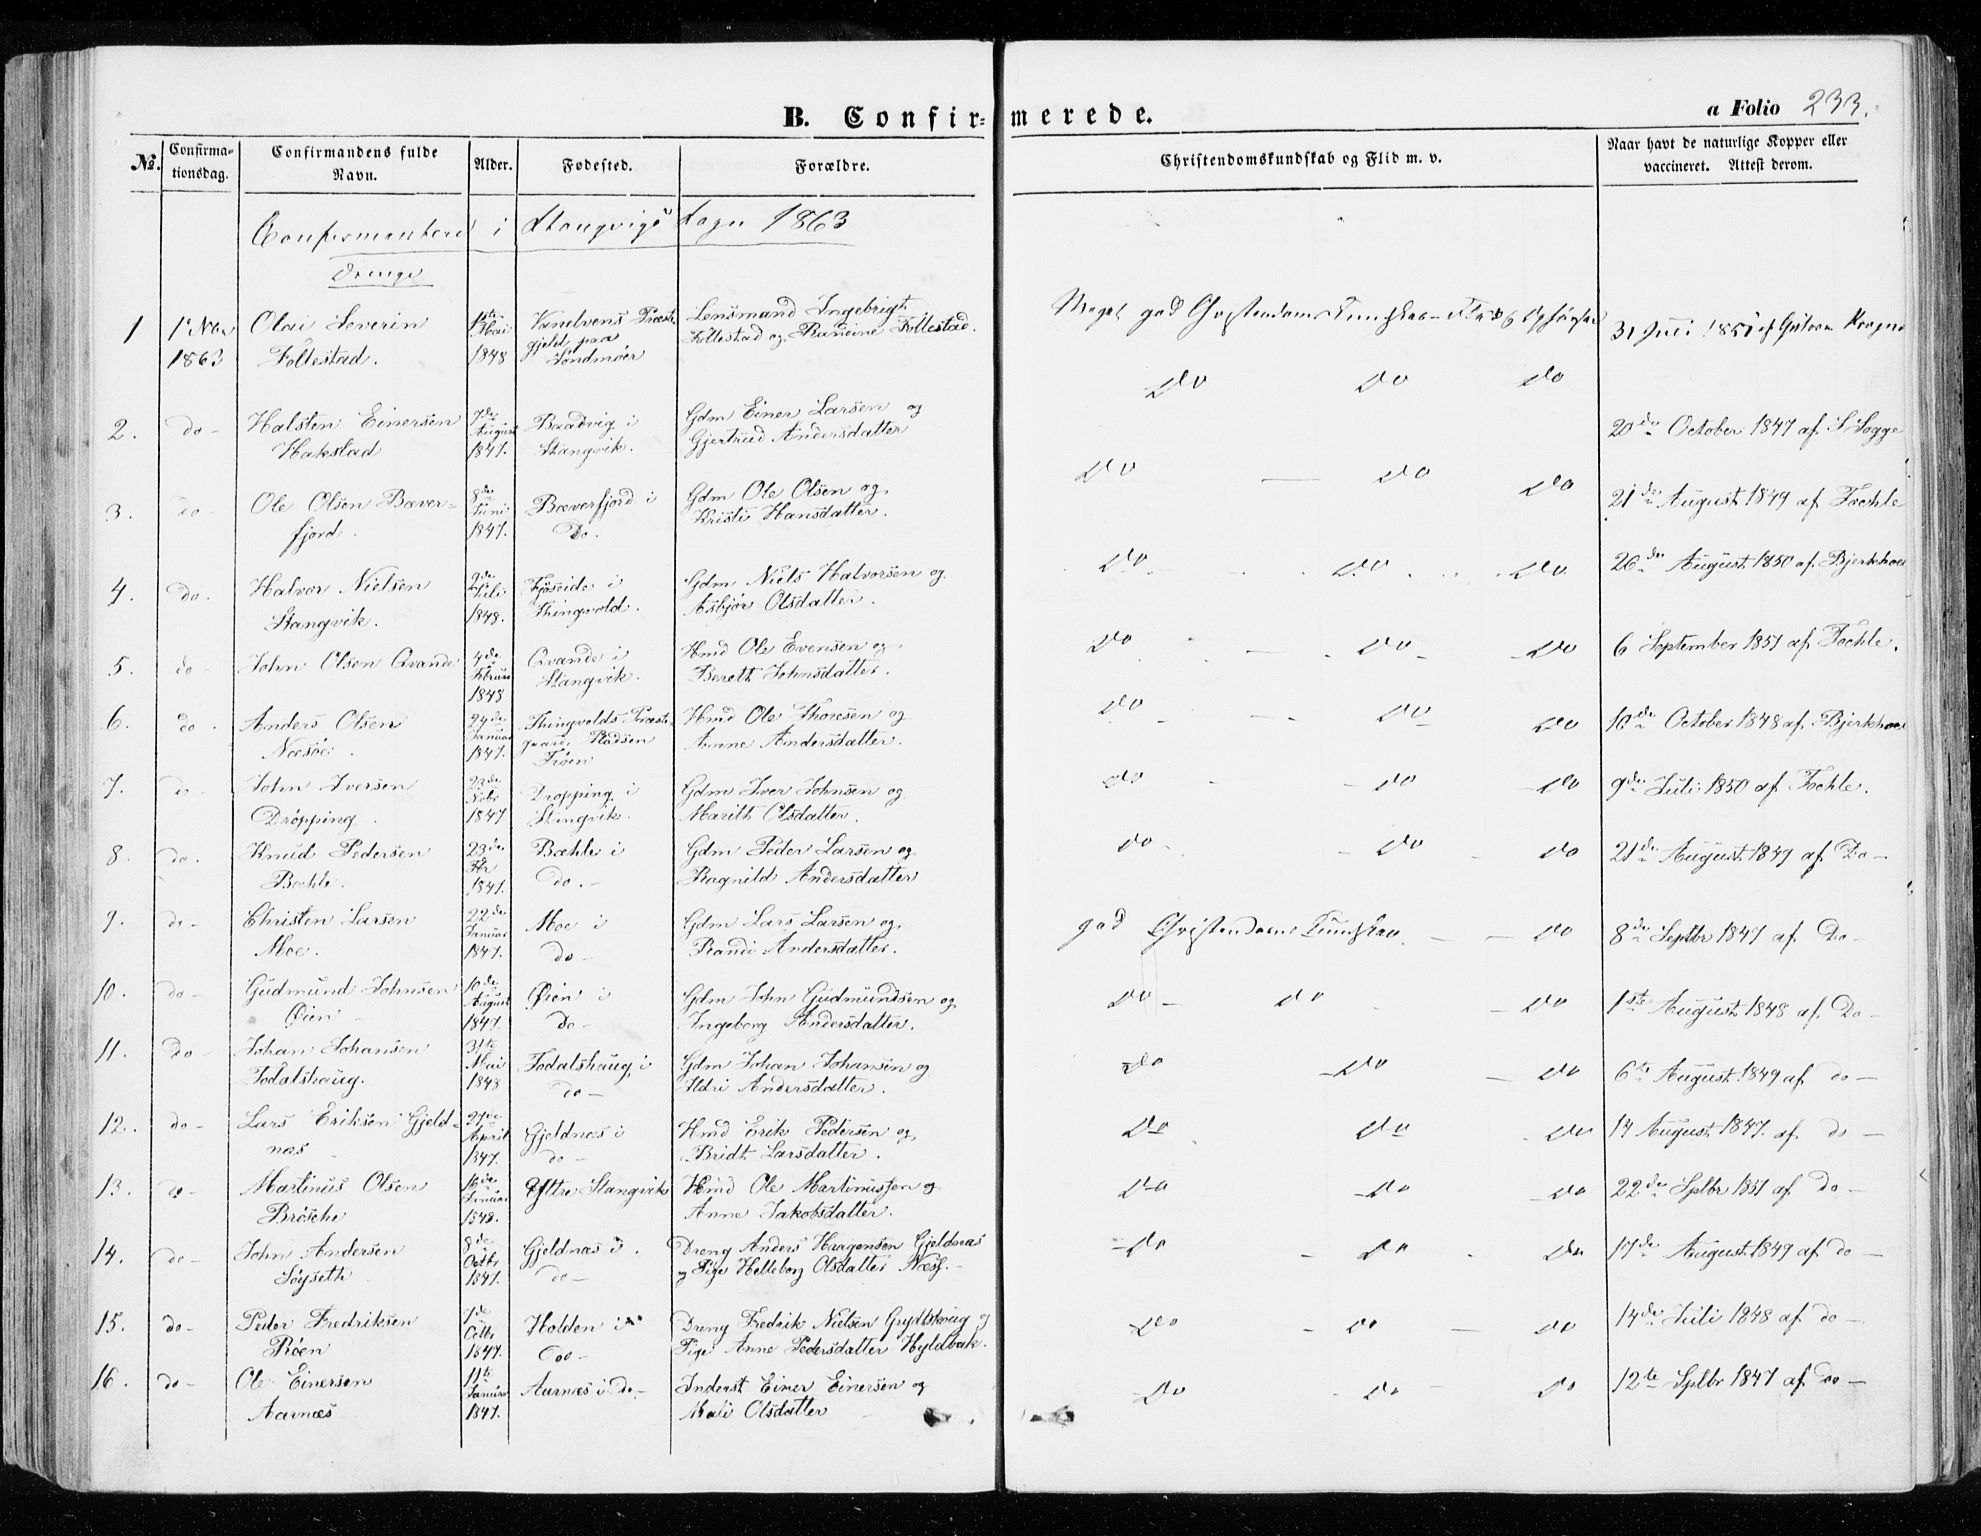 B. Confirmerede.
a Folio 233.
No. Confirmationsdag. Confirmandens fulde Navn. Alder. Fødested. Forældre. Christendomskundskab og Flid m. v. Naar havt de naturlige Kopper eller vaccineret. Attest derom.
i Stangvigs Sogn 1863
Drenge
1 1ste Nbr 1863 Olai Severin Follestad. 1ste Mai 1848 Vanelvens Præstegjeld paa Søndmøer Lensmand Ingebrigt Follestad og Follestad. Meget god Christendomskundskab - Flid og Opførsel 31 Juli 1851 af
Do Do Do
2. do - Halsten Einersen Hakstad 7de August 1847. Brødvig i Stangvik. Gdm Einer Larsen og Gjertrud Andersdatter 20de October 1847 af S Sogge
Do — Do Do
3. do - Ole Olsen Bæverfjord. 8de Juni 1847. Bæverfjord i Do. Gdm Ole Olsen og Kristi Hansdatter. 21de August 1849 af Fochle
4. do. Halvor Nielsen Stangvik. 2de Juli 1848. i Thingvold. Gdm Niels Halvorsen og Asbjør Olsdatter. Do - Do Do 26de August 1850 af Bjerkhoel
5. do - John Olsen Qvande 4de Februar 1848 Qvande i Stangvik. Hmd Ole Evensen og Bereth Johnsdatter. Do - Do - Do 6 September 1851 af Fochle.
6. do. Anders Olsen 24de Januar 1847. Thingvolds Præstegaard, Pladsen Hmd Ole Thoresen og Anne Andersdatter. Do - Do Do 10de October 1848 af Bjerkhoel
7. do John Iversen Drøpping. 23de Nbr 1847 Drøpping i Stangvik. Gdm Iver Johnsen og Marith Olsdatter. Do - Do - Do 9de Juli 1850 af Fochle.
8. do. Knud Pedersen Bæhle. 23de Fbr 1847. Bæhle i do. - Gdm Peder Larsen og Ragnild Andersdatter Do - Do - Do 21de August 1847 af Do -
9. do - Christen Larsen Moe. 22de Januar 1847. Moe i do - Gdm Lars Larsen og Randi Andersdatter. god Christendoms Kundskab - - Do 8de Septbr 1847 af Do -
10. do - Gudmund Johnsen Øien 10de August 1847 Øien i do - Gdm John Gudmundsen og Ingeborg Andersdatter. Do - Do - Do 1ste August 1848 af Do -
11. do - Johan Johansen Todalshaug. 31te Mai 1848 Todalshaug i do - Gdm Johan Johansen og Ildri Andersdatter. Do - Do - Do 6te August 1849 af do -
12. do - Lars Eriksen Gjeldnæs 27de April 1847. Gjeldnæs i do - Hmd Erik Pedersen og Bridt Larsdatter. Do Do Do 14 August 1847. af do -
13. do - Martinus Olsen Brøsche 16de Januar 1848. Yttre Stangvik Hmd Ole Martinussen og Anne Jakobsdatter. Do - Do - Do 22de Sptbr 1851 af do -
14. do - John Andersen Søyseth 8de Octbr 1847. Gjeldnæs i do - Dreng Anders Gjeldnæs og Pige Helleborg Olsdatter Næss. - Do - Do Do 17de August 1849 af do -
15. do - Peder Fredriksen Røen 7de Octbr 1847. Holden i do - Dreng Fredrik Nielsen og Pige Anne Pedersdatter Hyldbak. Do - Do - Do 14de Juli 1848 af do -
16. do - Ole Einersen Aarnæs 11te Januar 1847. Aarnæs i do - Inderst Einer Einersen og Mali Olsdatter - Do - Do - Do 12te Sptbr 1847 af do -